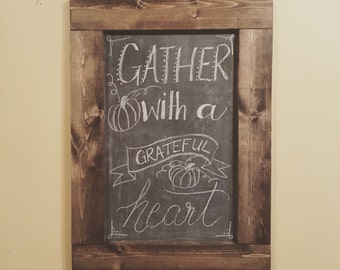 GATHER
with a
GRATEFUL
heart